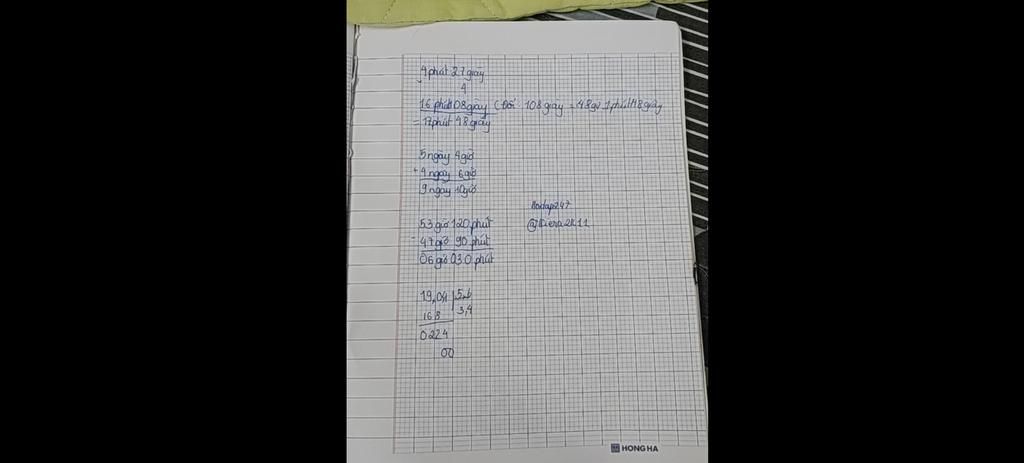 4 phút 27 giây
4
16 phút 108 giây (Đổi 108 giây = 1 phút 48 giây
= 17 phút 48 giây
5 ngày 4 giờ
+ 4 ngày 6 giờ
9 ngày 10 giờ
53 giờ 120 phút
- 47 giờ 90 phút
06 giờ 030 phút
hoidap247
@Kiera2k11
19,04 5,6
16 8 3,4
0 2 2 4
00
HONG HA